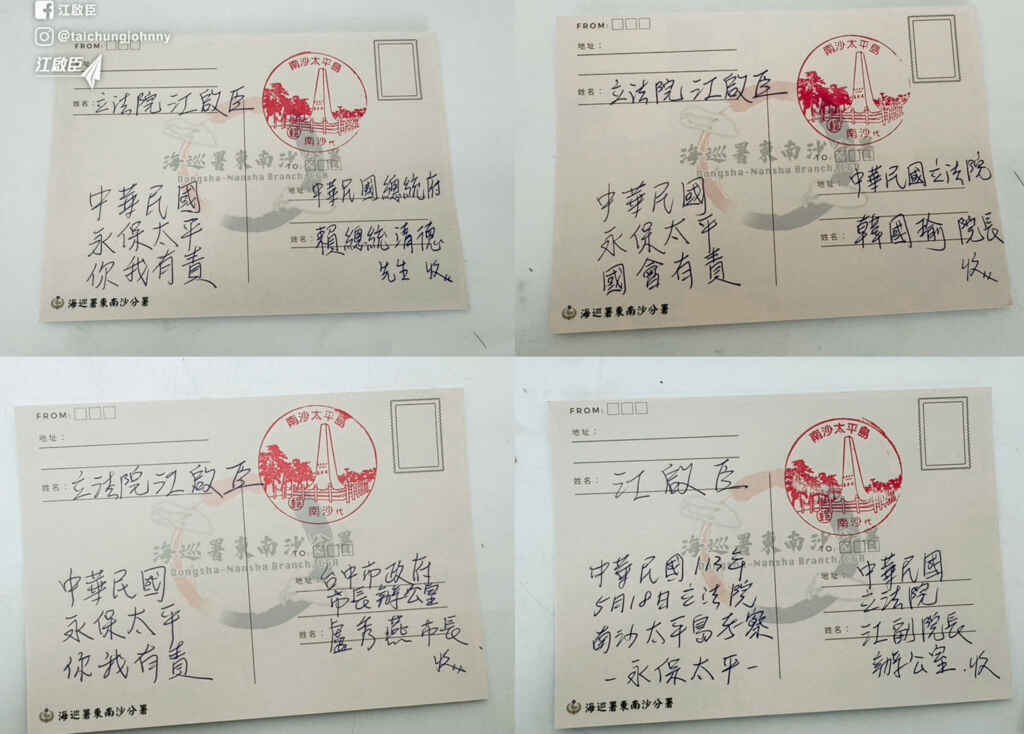 江啟臣
@taichungjohnny
江啟臣
FROM:
姓名：立法院 江啟臣
南沙太平島
南沙 代
海巡署東南沙分署
TO.
Dongsha-Nansha Branch, CGA
中華民國
永保太平
你我有責
地址：中華民國總統府
姓名：賴總統清德
先生 收
海巡署東南沙分署
FROM:
地址：
姓名：立法院 江啟臣
南沙太平島
南沙 代
海巡署東南沙分署
TO.
Dongsha-Nansha Branch, CGA
中華民國
永保太平
國會有責
地址：中華民國立法院
姓名：韓國瑜 院長
收
海巡署東南沙分署
FROM:
地址：
姓名：立法院 江啟臣
南沙太平島
南沙 代
海巡署東南沙分署
TO.
Dongsha-Nansha Branch, CGA
中華民國
永保太平
你我有責
地址：台中市政府
市長辦公室
姓名：盧秀燕 市長
收
海巡署東南沙分署
FROM:
地址：
姓名：江啟臣
南沙太平島
南沙 代
海巡署東南沙分署
TO.
Dongsha-Nansha Branch, CGA
中華民國113年
5月18日立法院
南沙太平島考察
-永保太平-
地址：中華民國
立法院
姓名：江副院長
辦公室 收
海巡署東南沙分署